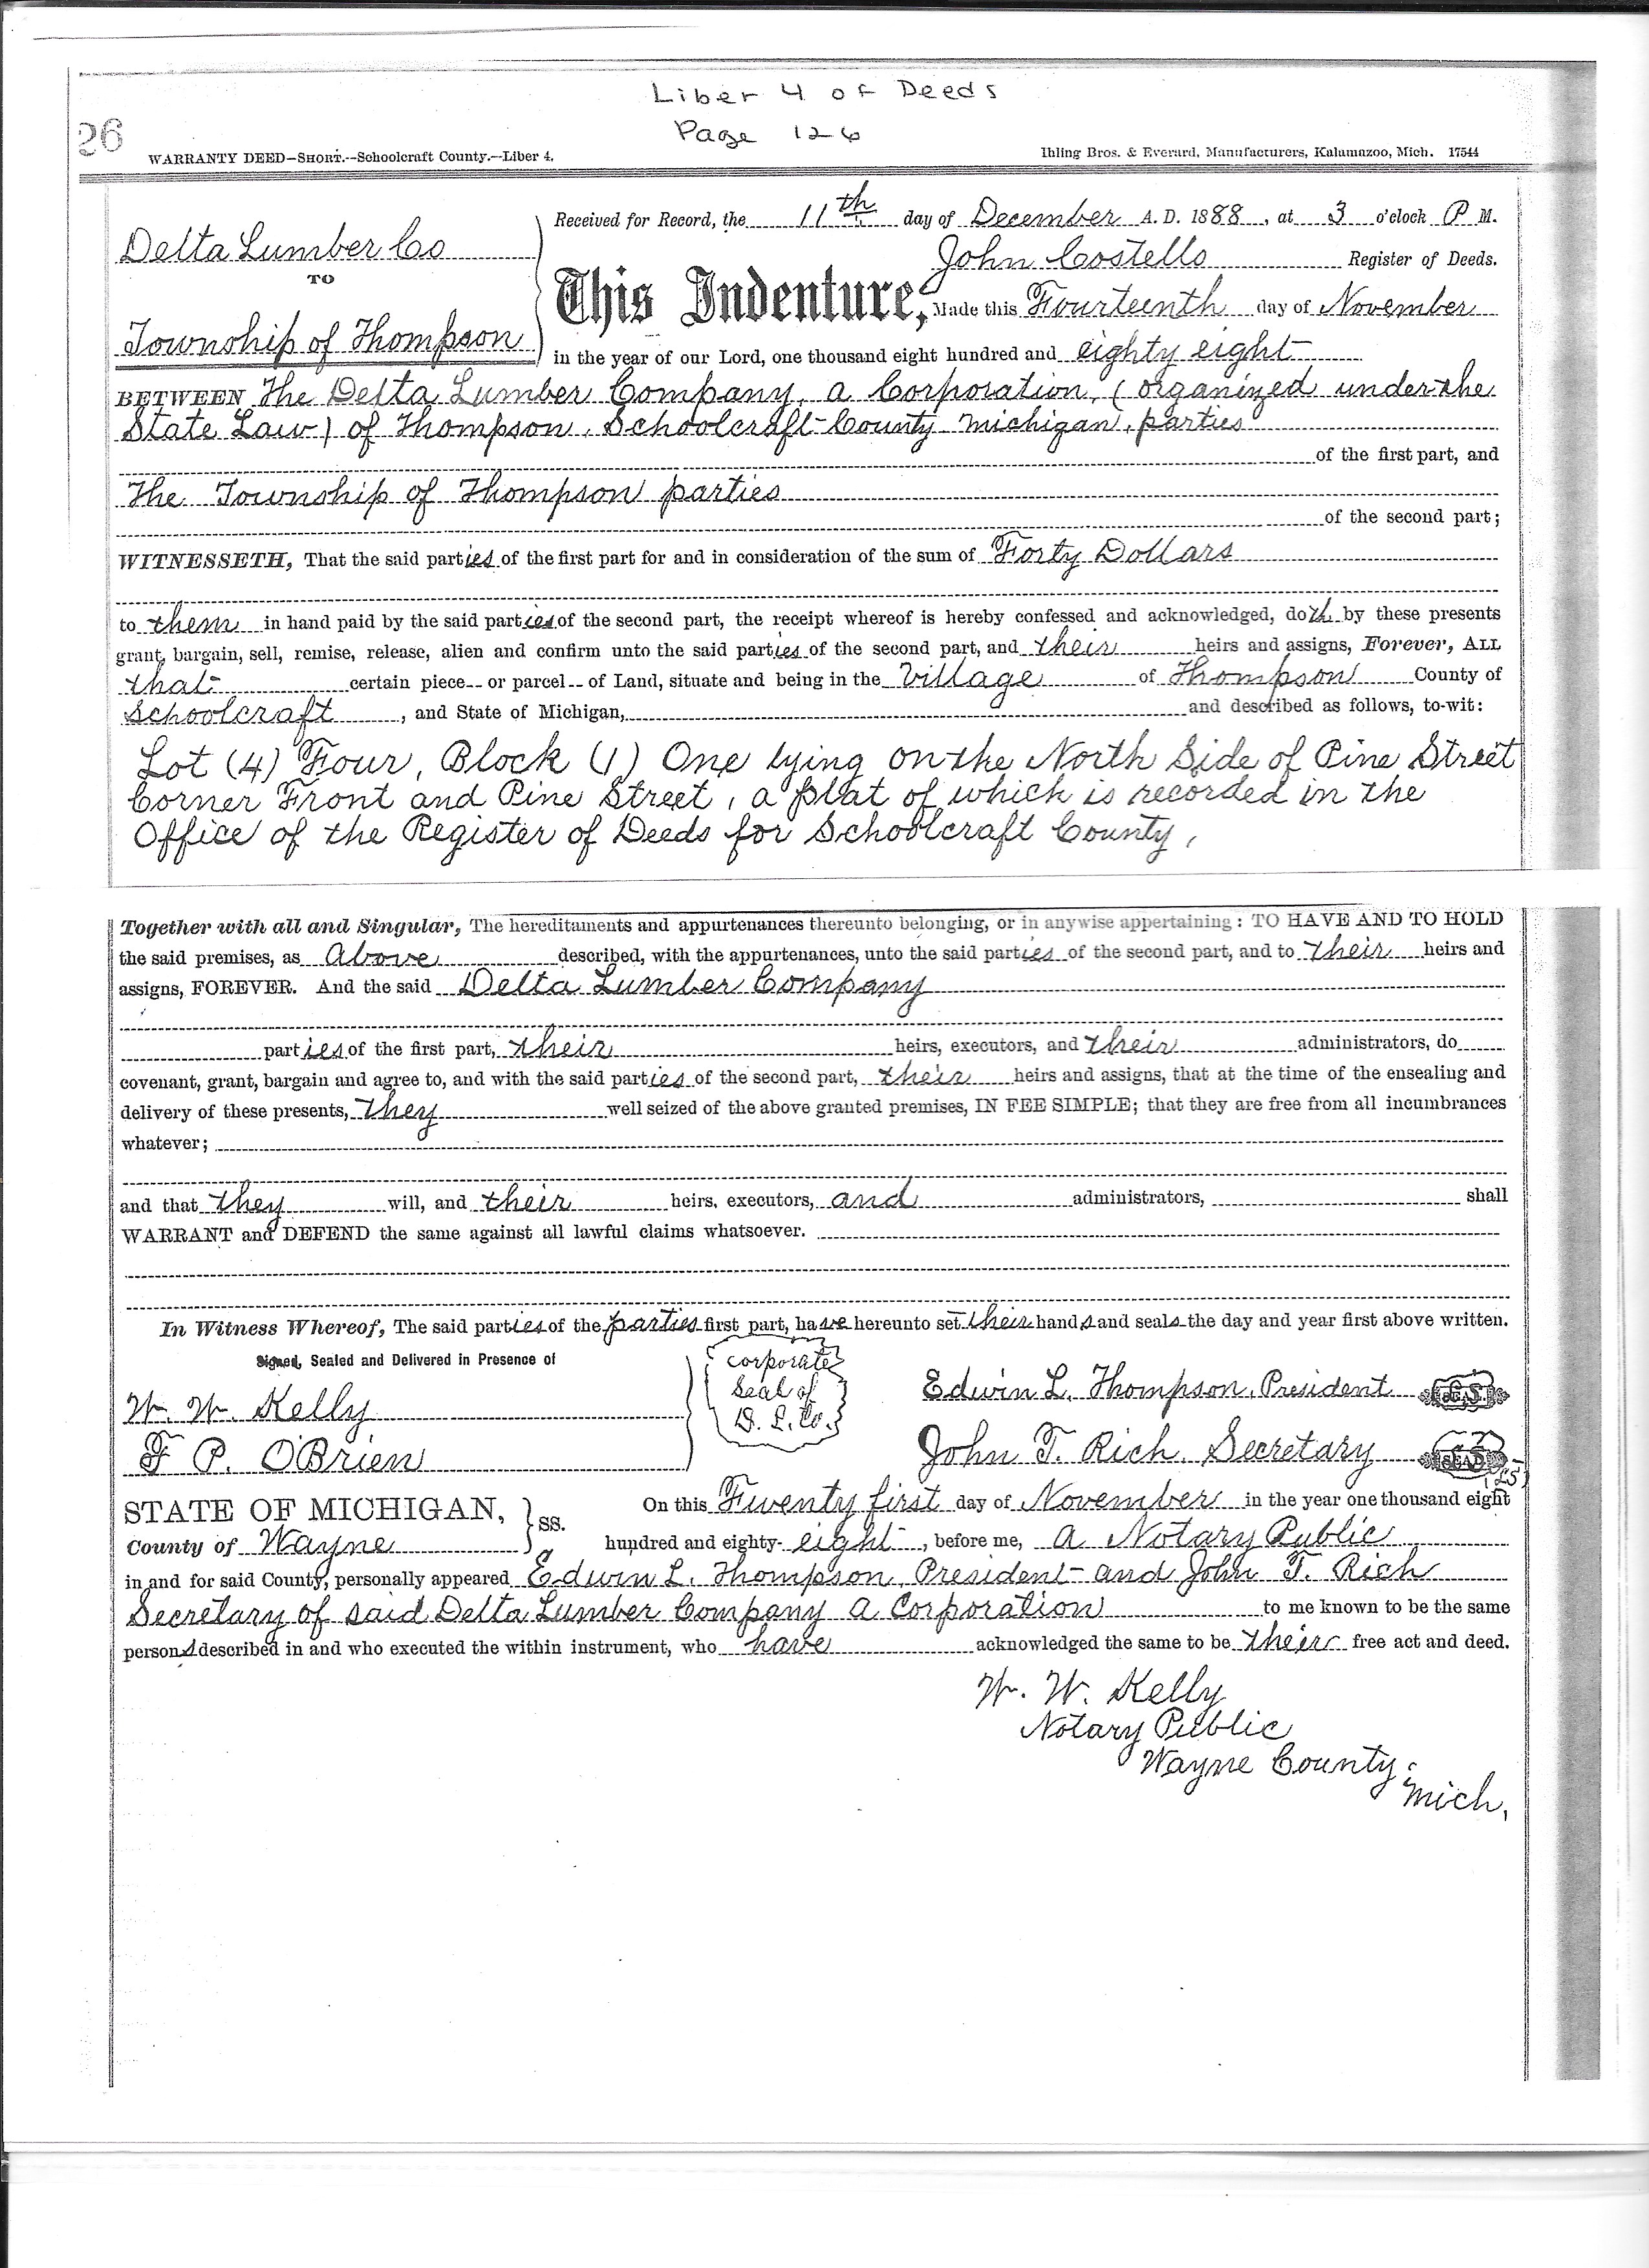 Liber 4 of Deeds
Page 126
26
WARRANTY DEED—SHORT.--Schoolcraft County.—Liber 4.
Ihling Bros. & Everard, Manufacturers, Kalamazoo, Mich. 17544
Received for Record, the 11th day of December A. D. 1888, at 3 o'clock P M.
John Costello Register of Deeds.
Delta Lumber Co
TO
Township of Thompson
This Indenture, Made this Fourteenth day of November
in the year of our Lord, one thousand eight hundred and eighty eight
BETWEEN The Delta Lumber Company, a Corporation, (organized under the
State Law) of Thompson, Schoolcraft County Michigan, parties
of the first part, and
The Township of Thompson parties
of the second part;
WITNESSETH, That the said parties of the first part for and in consideration of the sum of Forty Dollars
to them in hand paid by the said parties of the second part, the receipt whereof is hereby confessed and acknowledged, doth by these presents
grant, bargain, sell, remise, release, alien and confirm unto the said parties of the second part, and their heirs and assigns, Forever, ALL
that certain piece-- or parcel-- of Land, situate and being in the Village of Thompson County of
Schoolcraft, and State of Michigan, and described as follows, to-wit:
Lot (4) Four, Block (1) One lying on the North Side of Pine Street
Corner Front and Pine Street, a plat of which is recorded in the
Office of the Register of Deeds for Schoolcraft County,
Together with all and Singular, The hereditaments and appurtenances thereunto belonging, or in anywise appertaining: TO HAVE AND TO HOLD
the said premises, as Above described, with the appurtenances, unto the said parties of the second part, and to their heirs and
assigns, FOREVER. And the said Delta Lumber Company
parties of the first part, their heirs, executors, and their administrators, do
covenant, grant, bargain and agree to, and with the said parties of the second part, their heirs and assigns, that at the time of the ensealing and
delivery of these presents, they well seized of the above granted premises, IN FEE SIMPLE; that they are free from all incumbrances
whatever;
and that they will, and their heirs, executors, and administrators, shall
WARRANT and DEFEND the same against all lawful claims whatsoever.
In Witness Whereof, The said parties of the parties first part, have hereunto set their hands and seals the day and year first above written.
Signed, Sealed and Delivered in Presence of
W. W. Kelly
F P. O'Brien
corporate
Seal of
D. L. Co.
Edwin L. Thompson, President SEAL
John T. Rich, Secretary SEAL
STATE OF MICHIGAN, ss.
County of Wayne
On this Twenty first day of November in the year one thousand eight
hundred and eighty-eight, before me, a Notary Public
in and for said County, personally appeared Edwin L. Thompson, President and John T. Rich
Secretary of said Delta Lumber Company a Corporation to me known to be the same
persons described in and who executed the within instrument, who have acknowledged the same to be their free act and deed.
W. W. Kelly
Notary Public
Wayne County,
Mich,